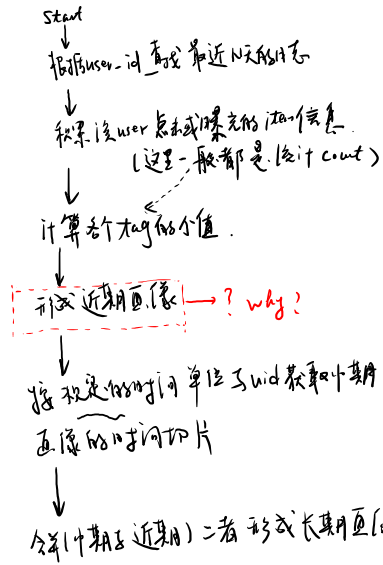 Start
根据user_id 查找 最近N天的日志
积累该user 点击或曝光的item信息
(这里一般都是 统计 count)
计算各个tag的 值.
形成近期画像 → ? why?
按规定的时间单位与uid获取中期
画像的时间切片
合并(中期与近期)二者 形成长期画